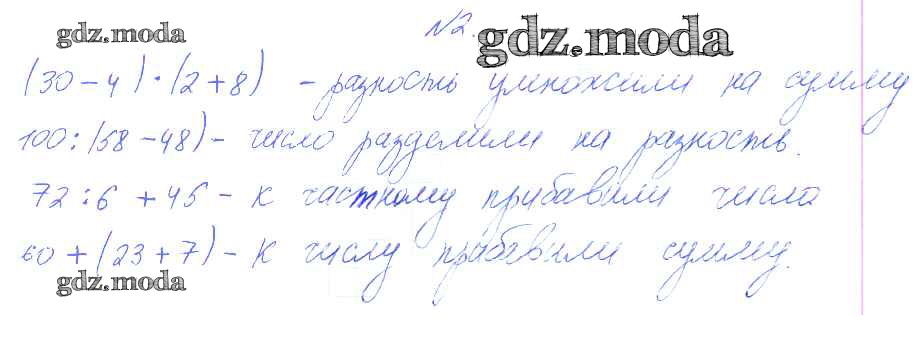 gdz.moda
№2.
gdz.moda
(30-4)·(2+8) - разность умножили на сумму
100:(58-48) - число разделили на разность.
72:6+45 - к частному прибавили числа
60+(23+7) - К числу прибавили сумму.
gdz.moda